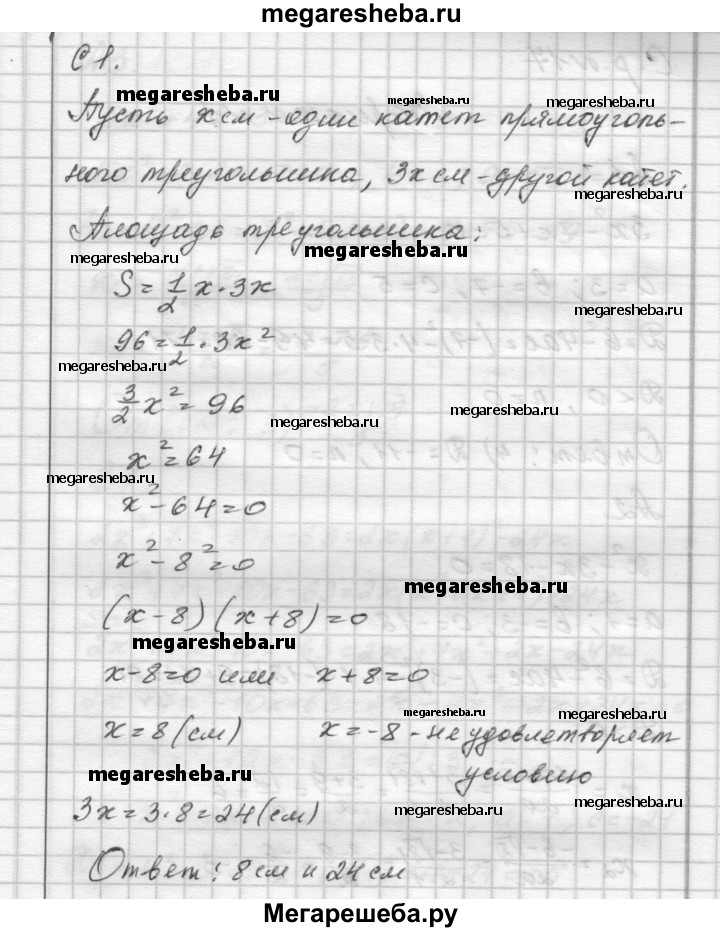 megaresheba.ru
С 1.
megaresheba.ru
megaresheba.ru
megaresheba.ru
Пусть x см - один катет прямоуголь-
ного треугольника, 3x см - другой катет.
megaresheba.ru
Площадь треугольника:
megaresheba.ru
megaresheba.ru
megaresheba.ru
S = 1/2 x · 3x
megaresheba.ru
96 = 1/2 · 3x²
megaresheba.ru
3/2 x² = 96
megaresheba.ru
megaresheba.ru
x² = 64
megaresheba.ru
x² - 64 = 0
x² - 8² = 0
megaresheba.ru
(x - 8) (x + 8) = 0
megaresheba.ru
megaresheba.ru
x - 8 = 0 или x + 8 = 0
megaresheba.ru
megaresheba.ru
x = 8 (см) x = -8 - не удовлетворяет
условию
megaresheba.ru
megaresheba.ru
3x = 3 · 8 = 24 (см)
megaresheba.ru
Ответ: 8 см и 24 см
megaresheba.ru
Мегарешеба.ру